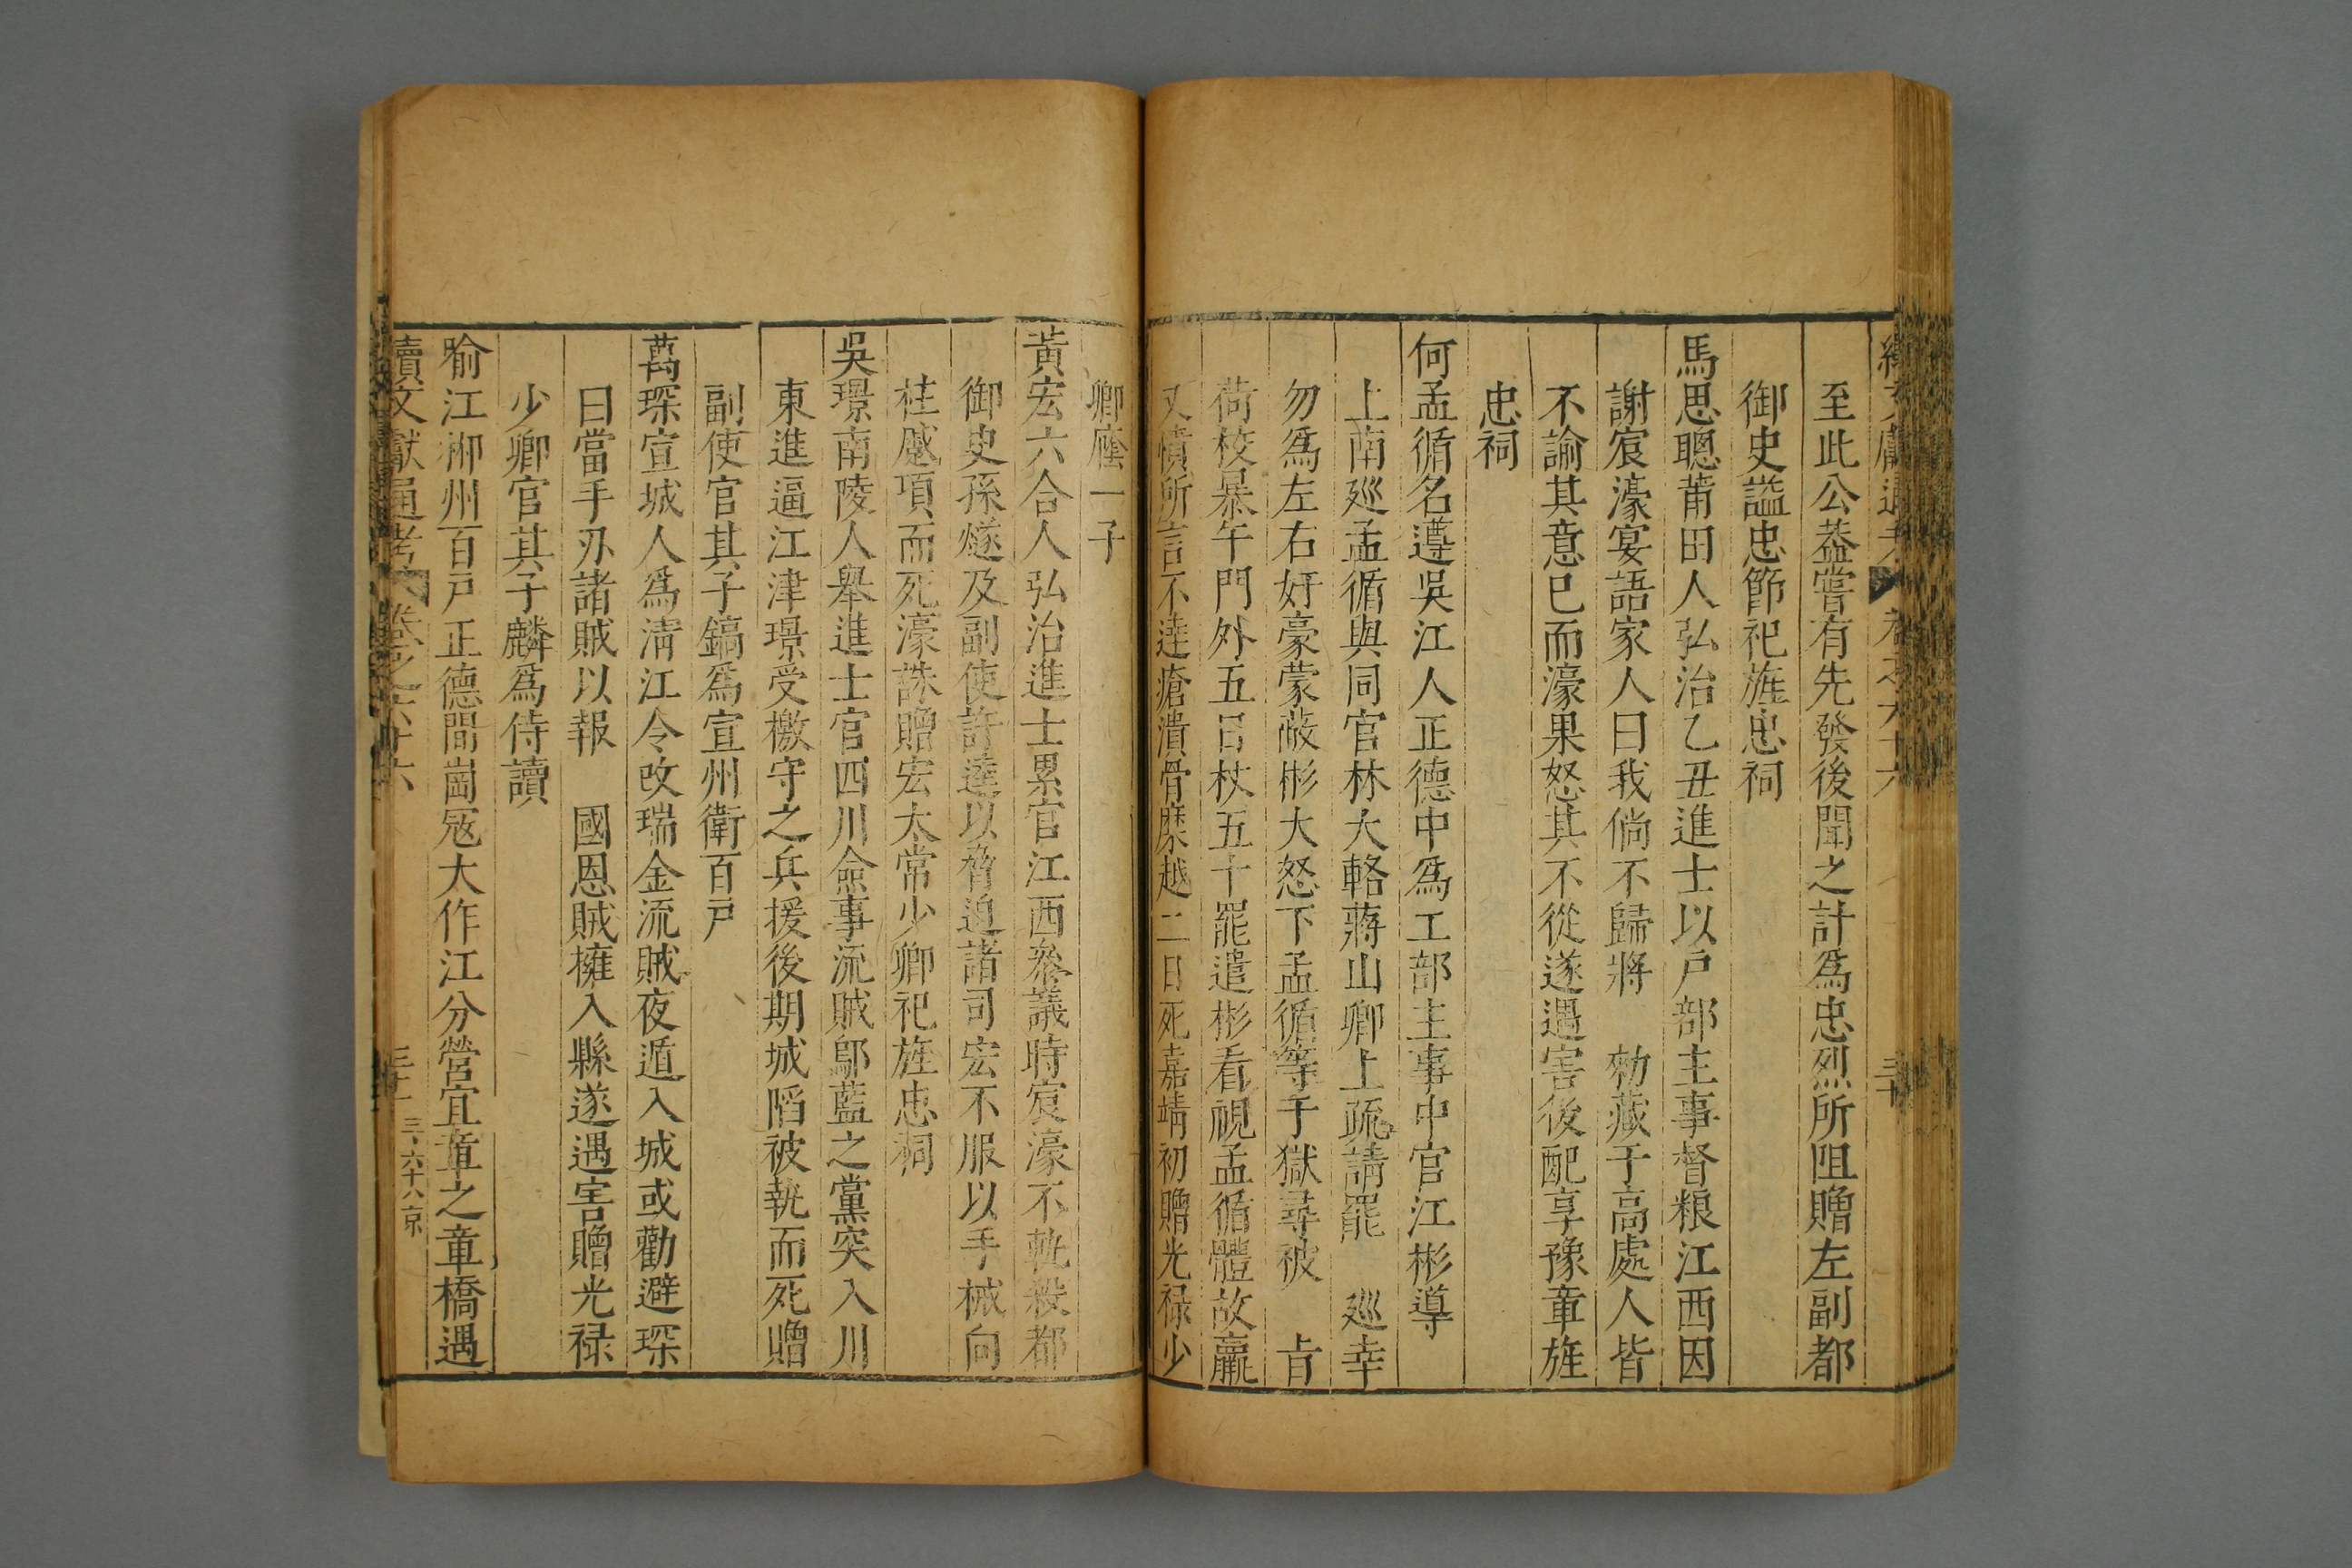 續文獻通考 卷之六十六 三十
至此公葢嘗有先發後聞之計爲忠烈所阻贈左副都
御史謚忠節祀旌忠祠
馬思聰莆田人弘治乙丑進士以戸部主事督粮江西因
謝宸濠宴語家人曰我倘不歸將 勑藏于高處人皆
不諭其意已而濠果怒其不從遂遇害後配享豫章旌
忠祠
何孟循名遵吳江人正德中爲工部主事中官江彬導
上南廵孟循與同官林大輅蔣山卿上疏請罷 廵幸
勿爲左右奸豪蒙蔽彬大怒下孟循等于獄尋被 旨
荷校暴午門外五日杖五十罷遣彬看視孟循體故羸
又憤所言不達瘡潰骨糜越二日死嘉靖初贈光禄少
卿廕一子
黃宏六合人弘治進士累官江西叅議時宸濠不軌殺都
御史孫燧及副使許逵以脅迫諸司宏不服以手械向
柱蹙項而死濠誅贈宏太常少卿祀旌忠祠
吳璟南陵人舉進士官四川僉事流賊鄢藍之黨突入川
東進逼江津璟受檄守之兵援後期城陷被執而死贈
副使官其子鎬爲宣州衛百戸
萬琛宣城人爲淸江令改瑞金流賊夜遁入城或勸避琛
曰當手刃諸賊以報 國恩賊擁入縣遂遇害贈光禄
少卿官其子麟爲侍讀
喻江郴州百戸正德間崗冦大作江分營宜章之章橋遇
續文獻通考 卷之六十六 三十一
三六十八京